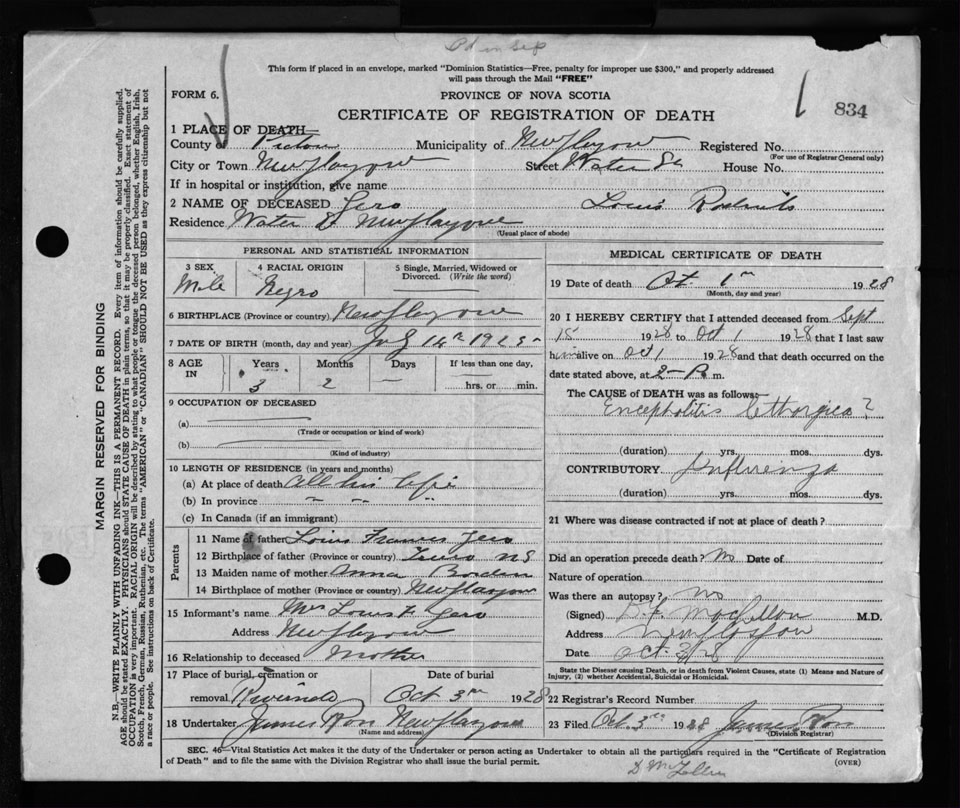 This form if placed in an envelope, marked "Dominion Statistics—Free, penalty for improper use $300," and properly addressed
will pass through the Mail "FREE"
FORM 6.
PROVINCE OF NOVA SCOTIA
CERTIFICATE OF REGISTRATION OF DEATH
834
1 PLACE OF DEATH
County of Pictou Municipality of New Glasgow Registered No.
(For use of Registrar General only)
City or Town New Glasgow Street Water St. House No.
If in hospital or institution, give name
2 NAME OF DECEASED Jero Louis
Residence Water St New Glasgow
(Usual place of abode)
PERSONAL AND STATISTICAL INFORMATION
3 SEX Male
4 RACIAL ORIGIN Negro
5 Single, Married, Widowed or Divorced. (Write the word)
6 BIRTHPLACE (Province or country) New Glasgow
7 DATE OF BIRTH (month, day and year) July 14th 1925
8 AGE IN Years Months Days If less than one day,
3 2 — hrs. or min.
9 OCCUPATION OF DECEASED
(a)
(Trade or occupation or kind of work)
(b)
(Kind of industry)
10 LENGTH OF RESIDENCE (in years and months)
(a) At place of death all his life
(b) In province " " "
(c) In Canada (if an immigrant)
Parents
11 Name of father Louis Francis Jero
12 Birthplace of father (Province or country) Truro N S
13 Maiden name of mother Anna Borden
14 Birthplace of mother (Province or Country) New Glasgow
15 Informant's name Mrs Louis F. Jero
Address New Glasgow
16 Relationship to deceased Mother
17 Place of burial, cremation or Date of burial
removal Riverside Oct 3rd 1928
18 Undertaker James Ross New Glasgow
(Name and address)
MEDICAL CERTIFICATE OF DEATH
19 Date of death Oct. 1st 1928
(Month, day and year)
20 I HEREBY CERTIFY that I attended deceased from Sept
15 1928 to Oct 1 1928 that I last saw
him alive on Oct 1 1928 and that death occurred on the
date stated above, at 2 P. m.
The CAUSE of DEATH was as follows:—
Encephalitis Lethargica?
(duration) yrs. mos. dys.
CONTRIBUTORY Influenza
(duration) yrs. mos. dys.
21 Where was disease contracted if not at place of death?
Did an operation precede death? No Date of
Nature of operation
Was there an autopsy? No
(Signed) M.D.
Address New Glasgow
Date Oct 3/28
State the Disease causing Death, or in death from Violent Causes, state (1) Means and Nature of
Injury, (2) whether Accidental, Suicidal or Homicidal.
22 Registrar's Record Number
23 Filed Oct. 3rd 1928 James Ross
(Division Registrar)
SEC. 46—Vital Statistics Act makes it the duty of the Undertaker or person acting as Undertaker to obtain all the particulars required in the "Certificate of Registration
of Death" and to file the same with the Division Registrar who shall issue the burial permit.
(OVER)
MARGIN RESERVED FOR BINDING
N.B.—WRITE PLAINLY WITH UNFADING INK—THIS IS A PERMANENT RECORD. Every item of information should be carefully supplied.
AGE should be stated EXACTLY. PHYSICIANS should STATE CAUSE OF DEATH in plain terms, so that it may be properly classified. Exact statement of
OCCUPATION is very important. RACIAL ORIGIN will be described by stating to what people or tongue the deceased person belonged, whether English, Irish,
Scotch, French, German, Russian, Ruthenian, etc. The terms "AMERICAN" or "CANADIAN" SHOULD NOT BE USED as they express citizenship but not
a race or people. See instructions on back of Certificate.